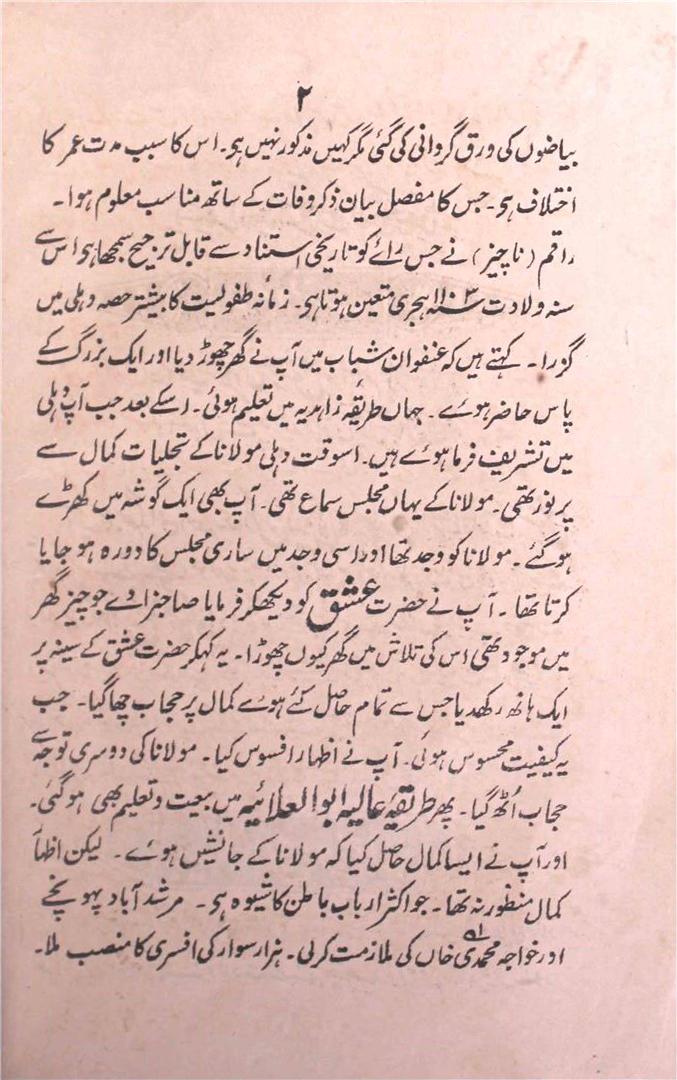 ۲
بیاضوں کی ورق گردانی کی گئی مگر کہیں مذکور نہیں ہو۔ اس کا سبب مدت عمر کا
اختلاف ہو۔ جس کا مفصل بیان ذکر وفات کے ساتھ مناسب معلوم ہوا۔
راقم (ناچیز) نے جس رائے کو تاریخی استناد سے قابل ترجیح سمجھا ہو اس سے
سنہ ولادت ۱۱۰۳ سنہ ہجری متعین ہوتا ہو۔ زمانہ طفولیت کا بیشتر حصہ دہلی میں
گزرا۔ کہتے ہیں کہ عنفوان شباب میں آپ نے گھر چھوڑ دیا اور ایک بزرگ کے
پاس حاضر ہوئے۔ جہاں طریقہ زاہدیہ میں تعلیم ہوئی۔ اسکے بعد جب آپ دہلی
میں تشریف فرما ہوئے ہیں۔ اسوقت دہلی مولانا کے تجلیات کمال سے
پر نور تھی۔ مولانا کے یہاں مجلس سماع تھی۔ آپ بھی ایک گوشہ میں کھڑے
ہو گئے۔ مولانا کو وجد تھا اور اسی وجد میں ساری مجلس کا دورہ ہو جایا
کرتا تھا۔ آپ نے حضرت عشق کو دیکھکر فرمایا صاحبزادے جو چیز گھر
میں موجود تھی اس کی تلاش میں گھر کیوں چھوڑا۔ یہ کہکر حضرت عشق کے سینہ پر
ایک ہاتھ رکھدیا جس سے تمام حاصل کئے ہوئے کمال پر حجاب چھا گیا۔ جب
یہ کیفیت محسوس ہوئی۔ آپ نے اظہار افسوس کیا۔ مولانا کی دوسری توجہ سے
حجاب اُٹھ گیا۔ پھر طریقہ عالیہ ابو العلائیہ میں بیعت و تعلیم بھی ہو گئی۔
اور آپ نے ایسا کمال حاصل کیا کہ مولانا کے جانشیں ہوئے۔ لیکن اظہار
کمال منظور نہ تھا۔ جو اکثر ارباب باطن کا شیوہ ہو۔ مرشد آباد پہونچے
اور خواجہ محمدی خاں کی ملازمت کرلی۔ ہزار سوار کی افسری کا منصب ملا۔